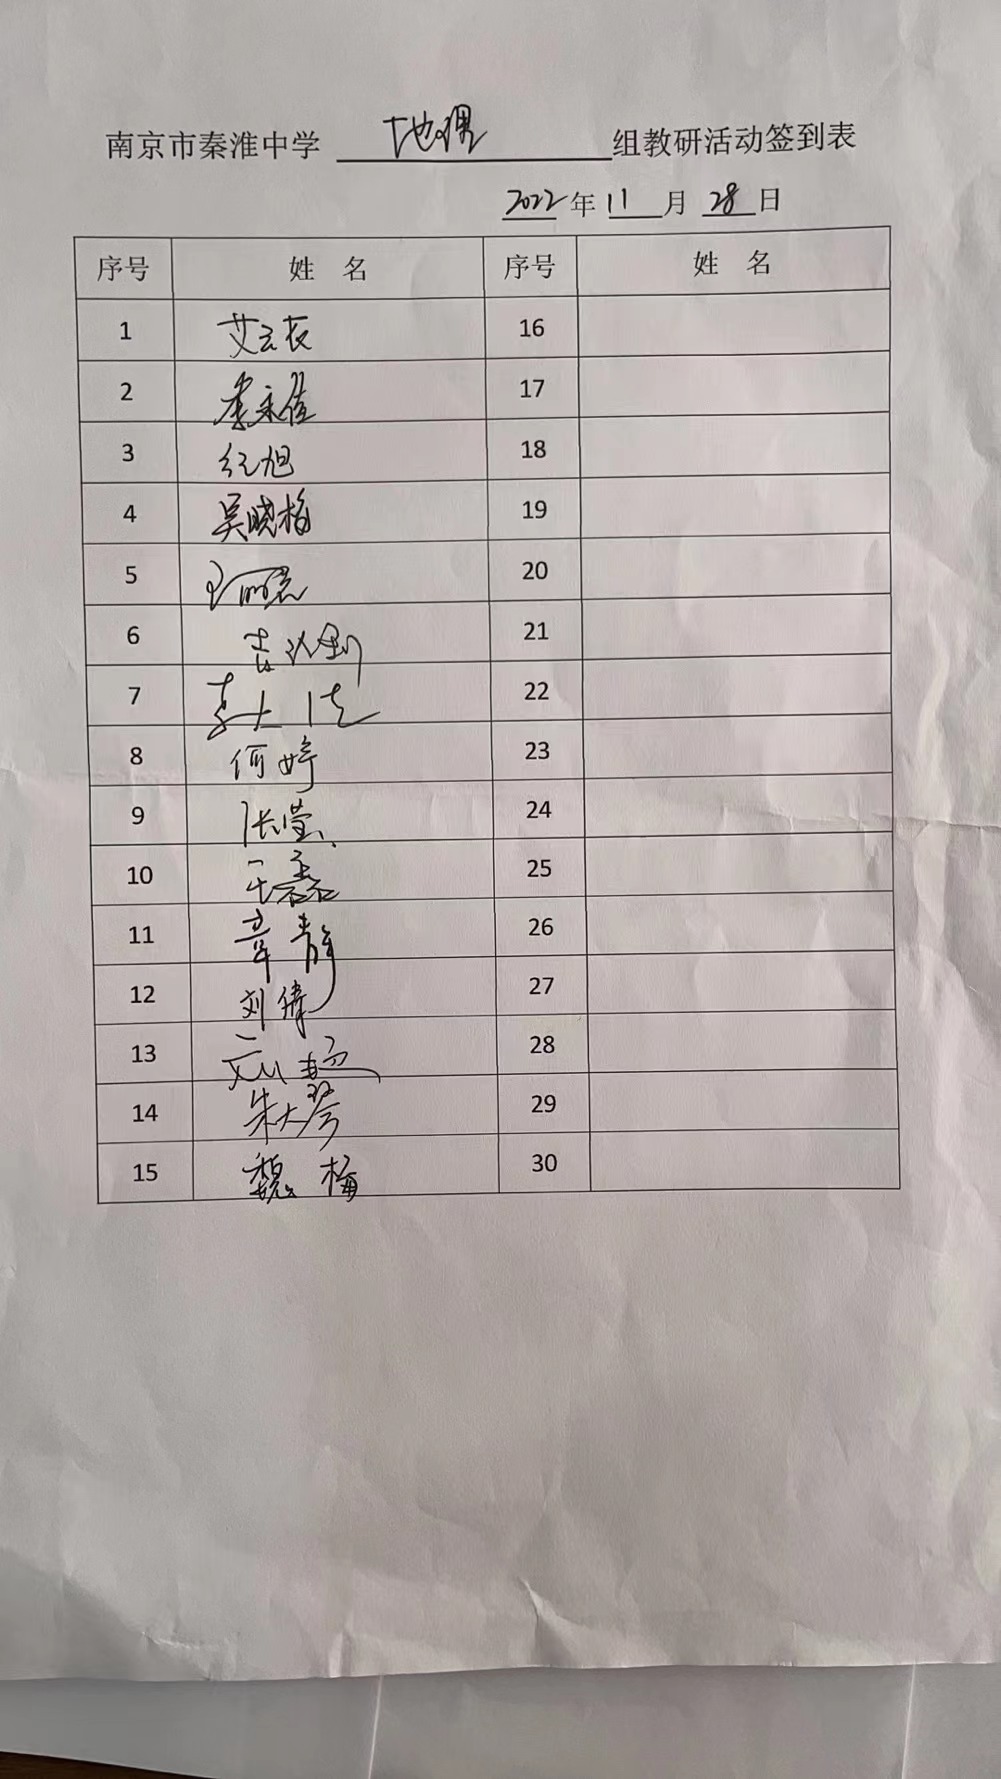 南京市秦淮中学 地理 组教研活动签到表
2022 年 11 月 28 日
序号 姓 名 序号 姓 名
1 16
2 李永佳 17
3 纪旭 18
4 吴晓梅 19
5 20
6 21
7 22
8 何婷 23
9 张莹 24
10 王磊 25
11 章静 26
12 刘倩 27
13 28
14 朱大琴 29
15 魏梅 30